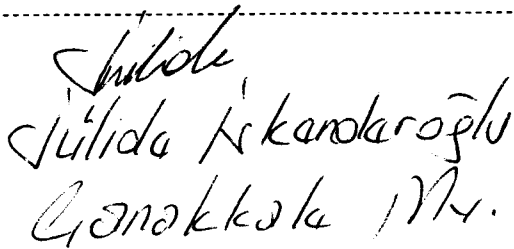 Jülide
Jülide İskenderoğlu
Çanakkale Mv.